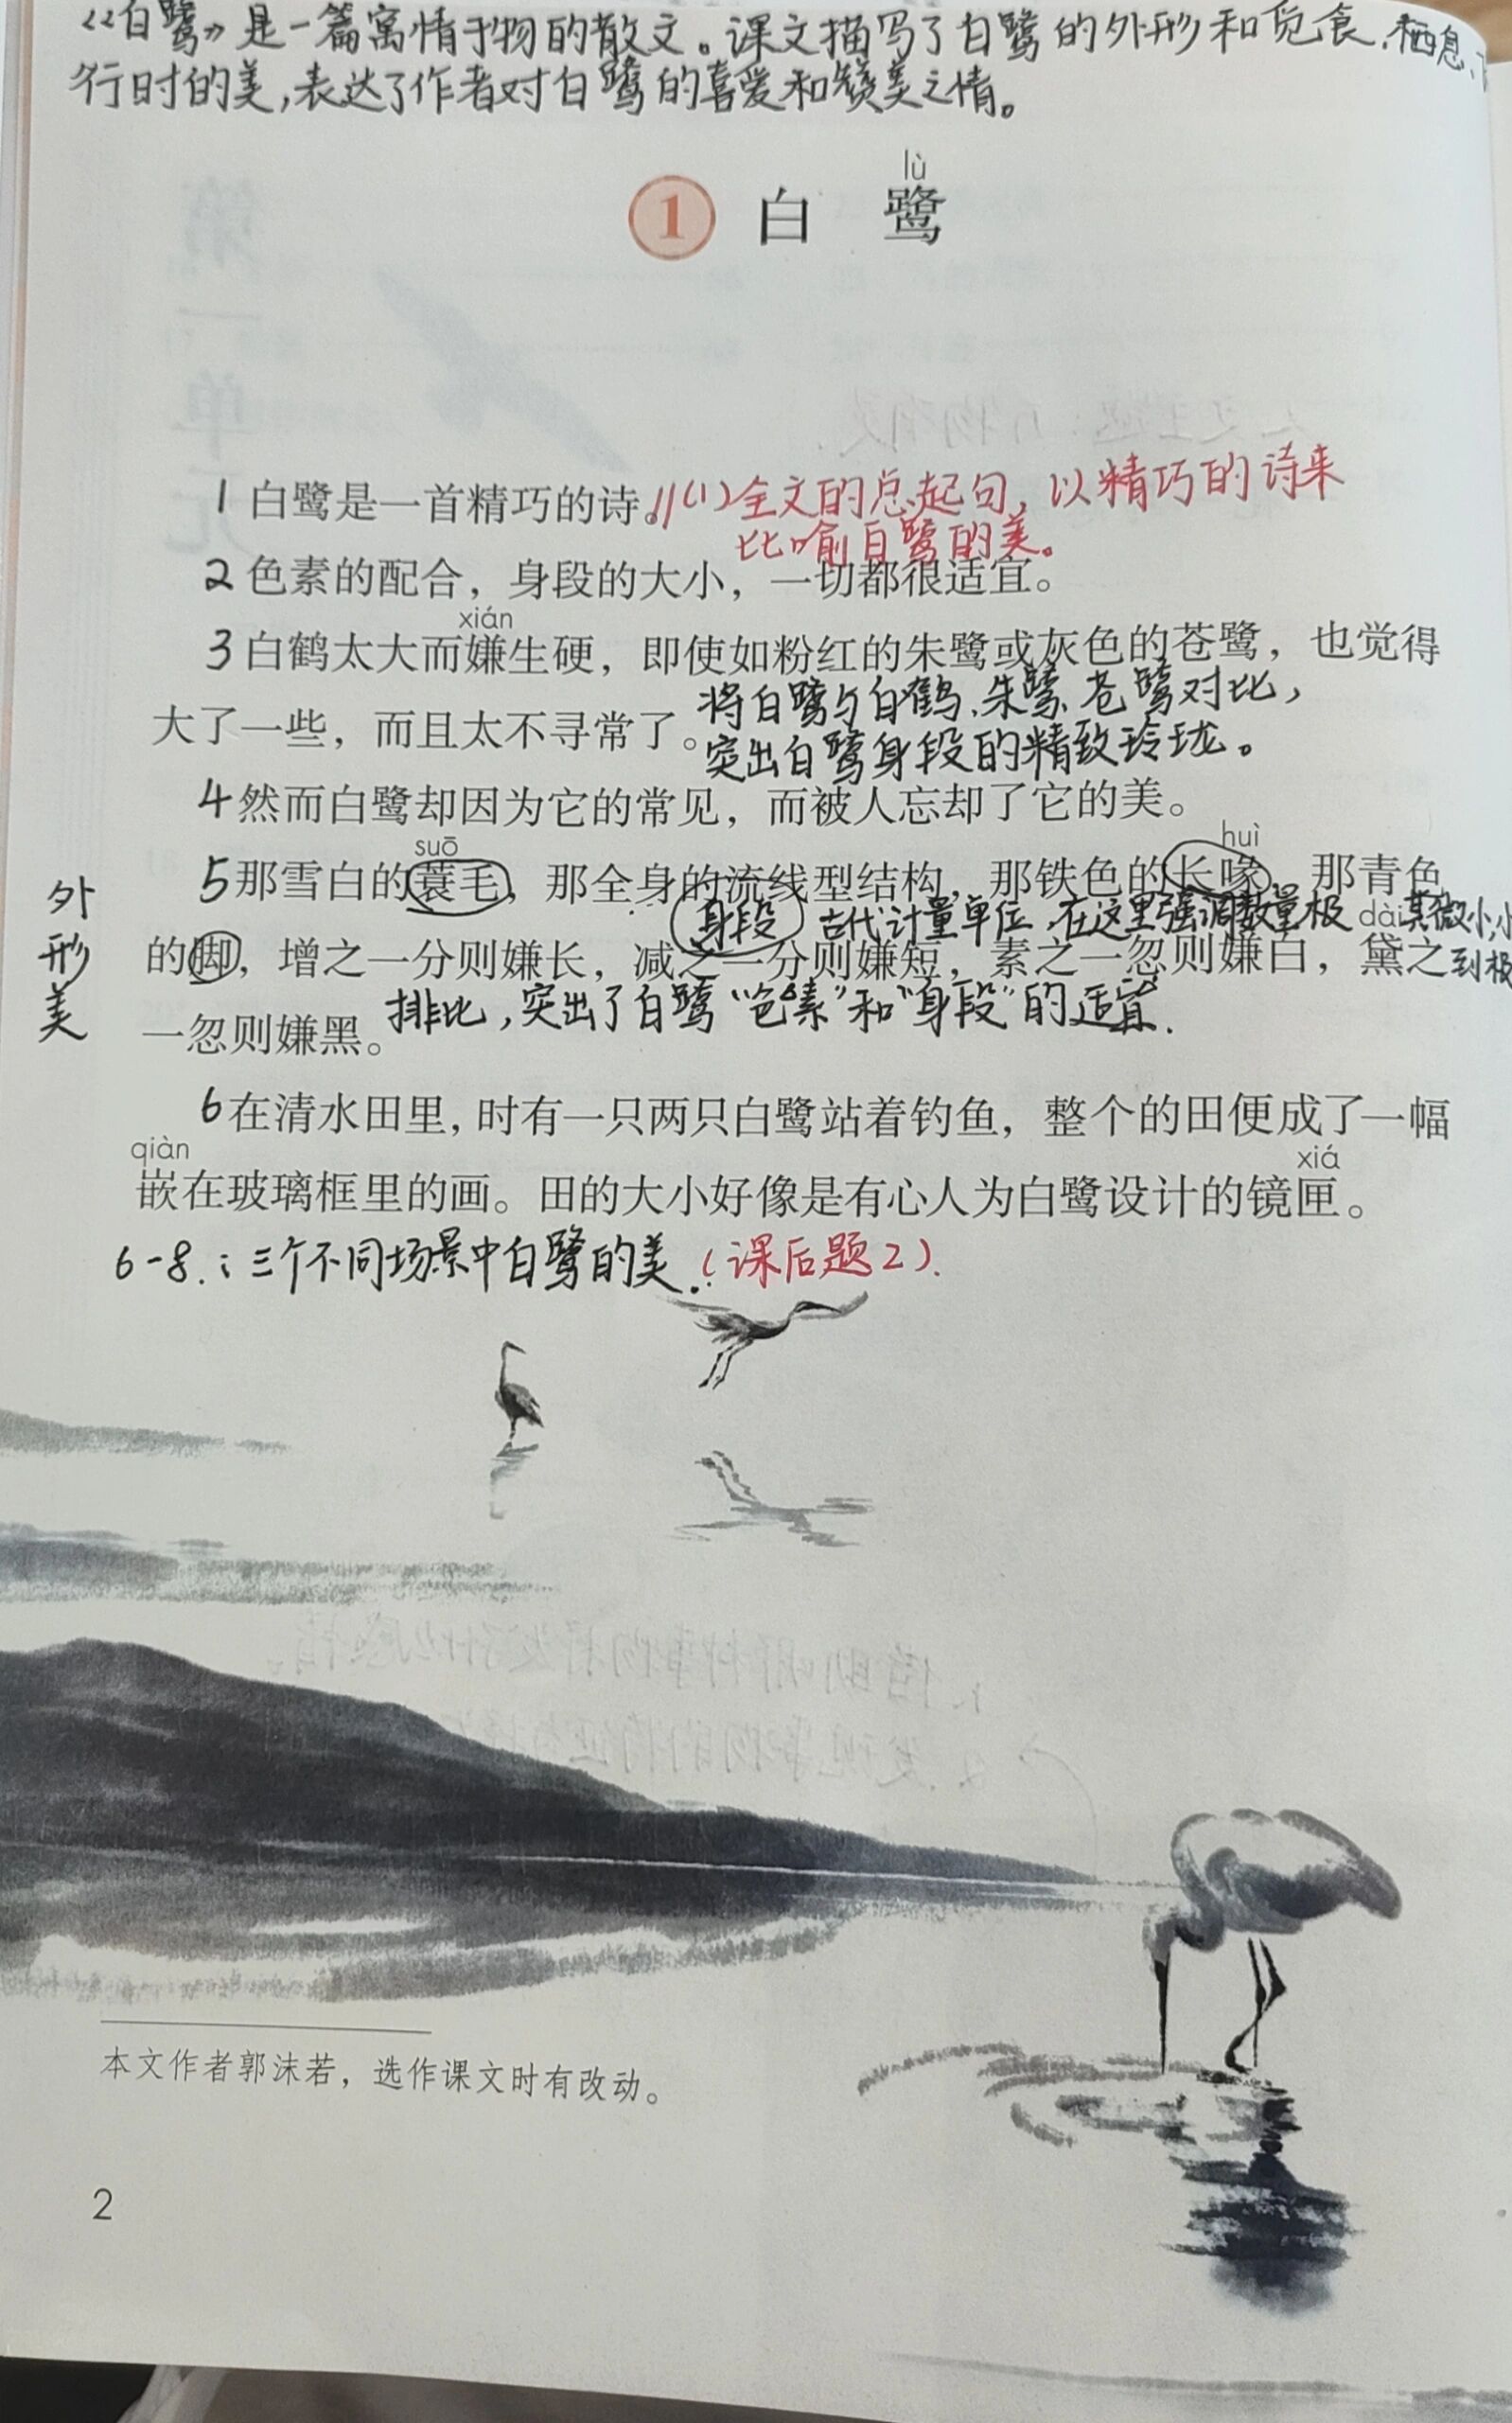 《白鹭》是一篇寓情于物的散文。课文描写了白鹭的外形和觅食、栖息、
行时的美，表达了作者对白鹭的喜爱和赞美之情。
lù
1 白 鹭
1 白鹭是一首精巧的诗。//(1)全文的总起句，以精巧的诗来
比喻白鹭的美。
2 色素的配合，身段的大小，一切都很适宜。
xián
3 白鹤太大而嫌生硬，即使如粉红的朱鹭或灰色的苍鹭，也觉得
将白鹭与白鹤、朱鹭、苍鹭对比，
大了一些，而且太不寻常了。
突出白鹭身段的精致玲珑。
4 然而白鹭却因为它的常见，而被人忘却了它的美。
suō huì
外形美
5 那雪白的蓑毛，那全身的流线型结构，那铁色的长喙，那青色
身段 古代计量单位，在这里强调数量极其微小，小
dài
的脚，增之一分则嫌长，减之一分则嫌短，素之一忽则嫌白，黛之
到极
一忽则嫌黑。
排比，突出了白鹭“色素”和“身段”的适宜.
6 在清水田里，时有一只两只白鹭站着钓鱼，整个的田便成了一幅
qiàn xiá
嵌在玻璃框里的画。田的大小好像是有心人为白鹭设计的镜匣。
6-8.：三个不同场景中白鹭的美.（课后题2）.
本文作者郭沫若，选作课文时有改动。
2